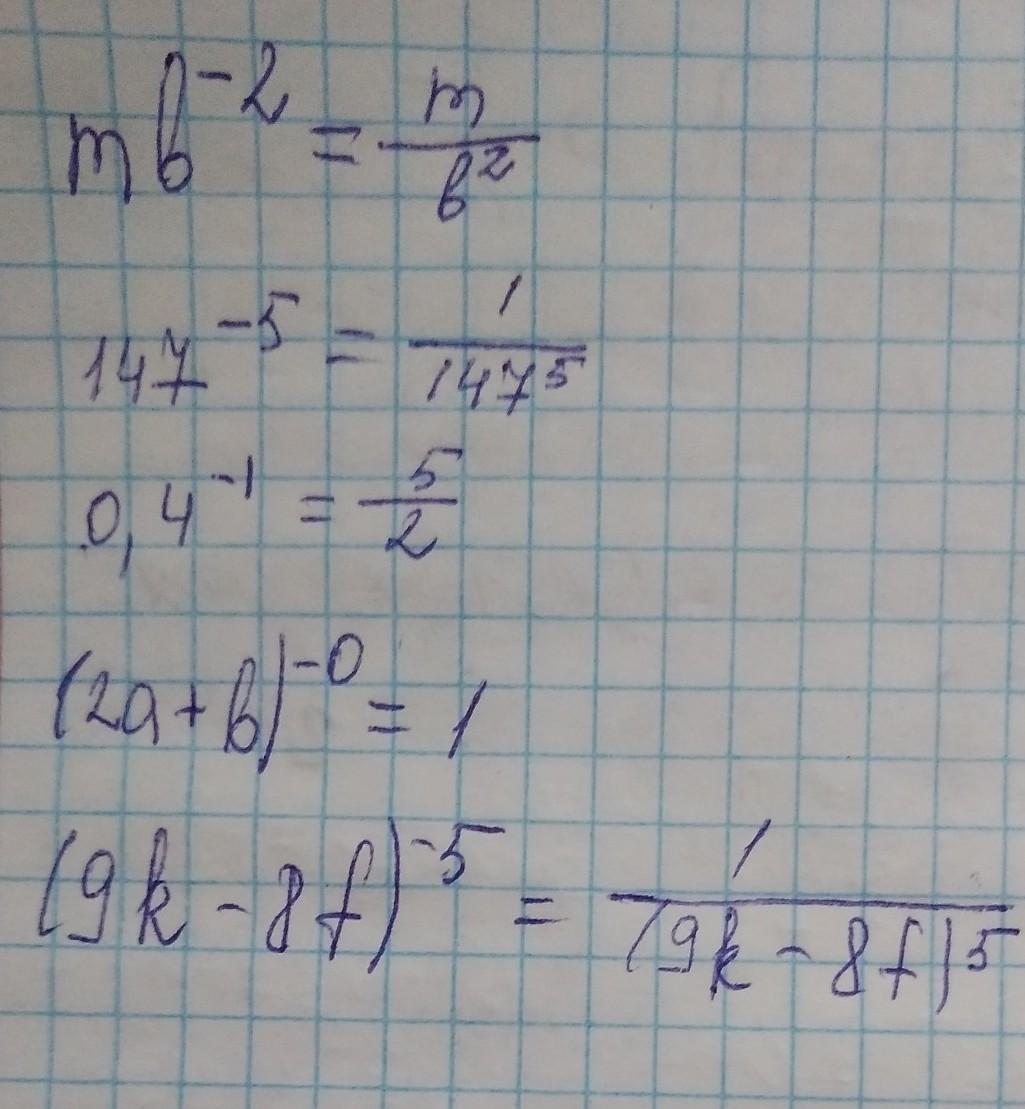 mb⁻² = m/b²
147⁻⁵ = 1/147⁵
0,4⁻¹ = 5/2
(2a+b)⁻⁰ = 1
(9k-8f)⁻⁵ = 1/(9k-8f)⁵